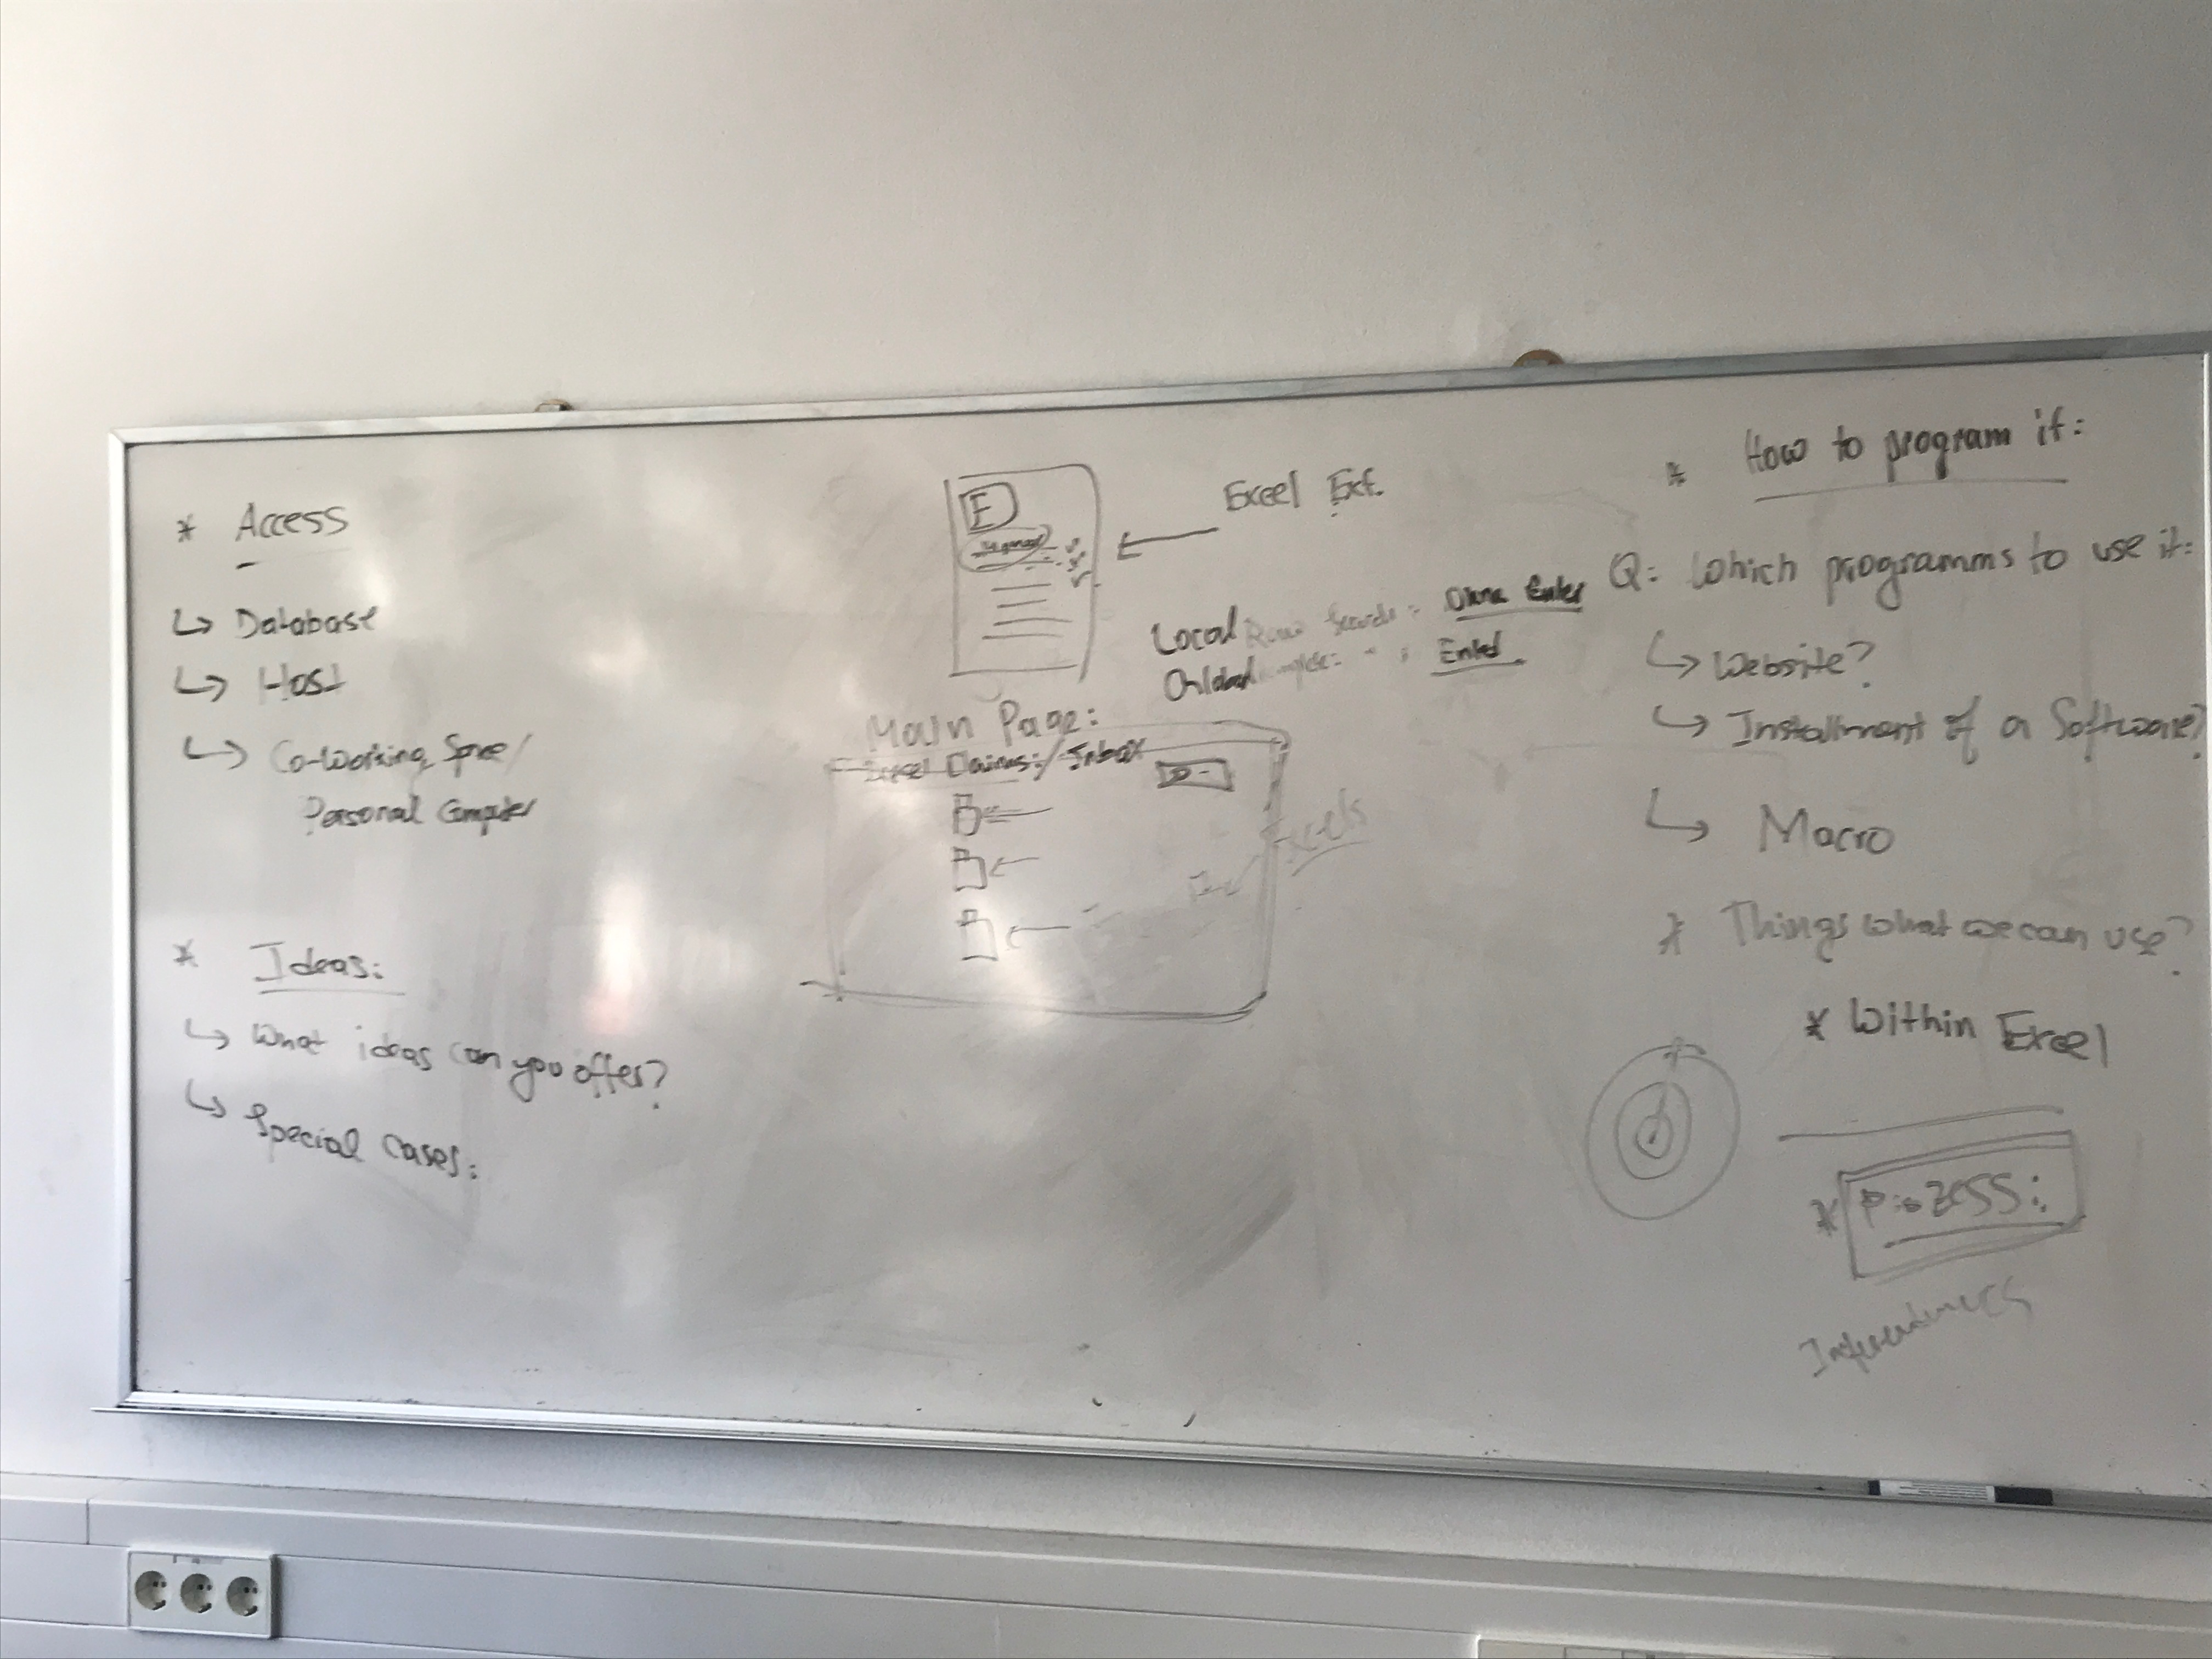 * Access
↳ Database
↳ Host
↳ Co-Working Space/
Personal Computer
* Ideas:
↳ What ideas can you offer?
↳ Special Cases:
E
Excel Ext.
Local
Ohne Enter
Enter
Main Page:
Claims:/Inbox
* How to program it:
Q: Which programms to use it:
↳ Website?
↳ Installment of a Software?
↳ Macro
* Things what we can use?
* Within Excel
* Prozess: